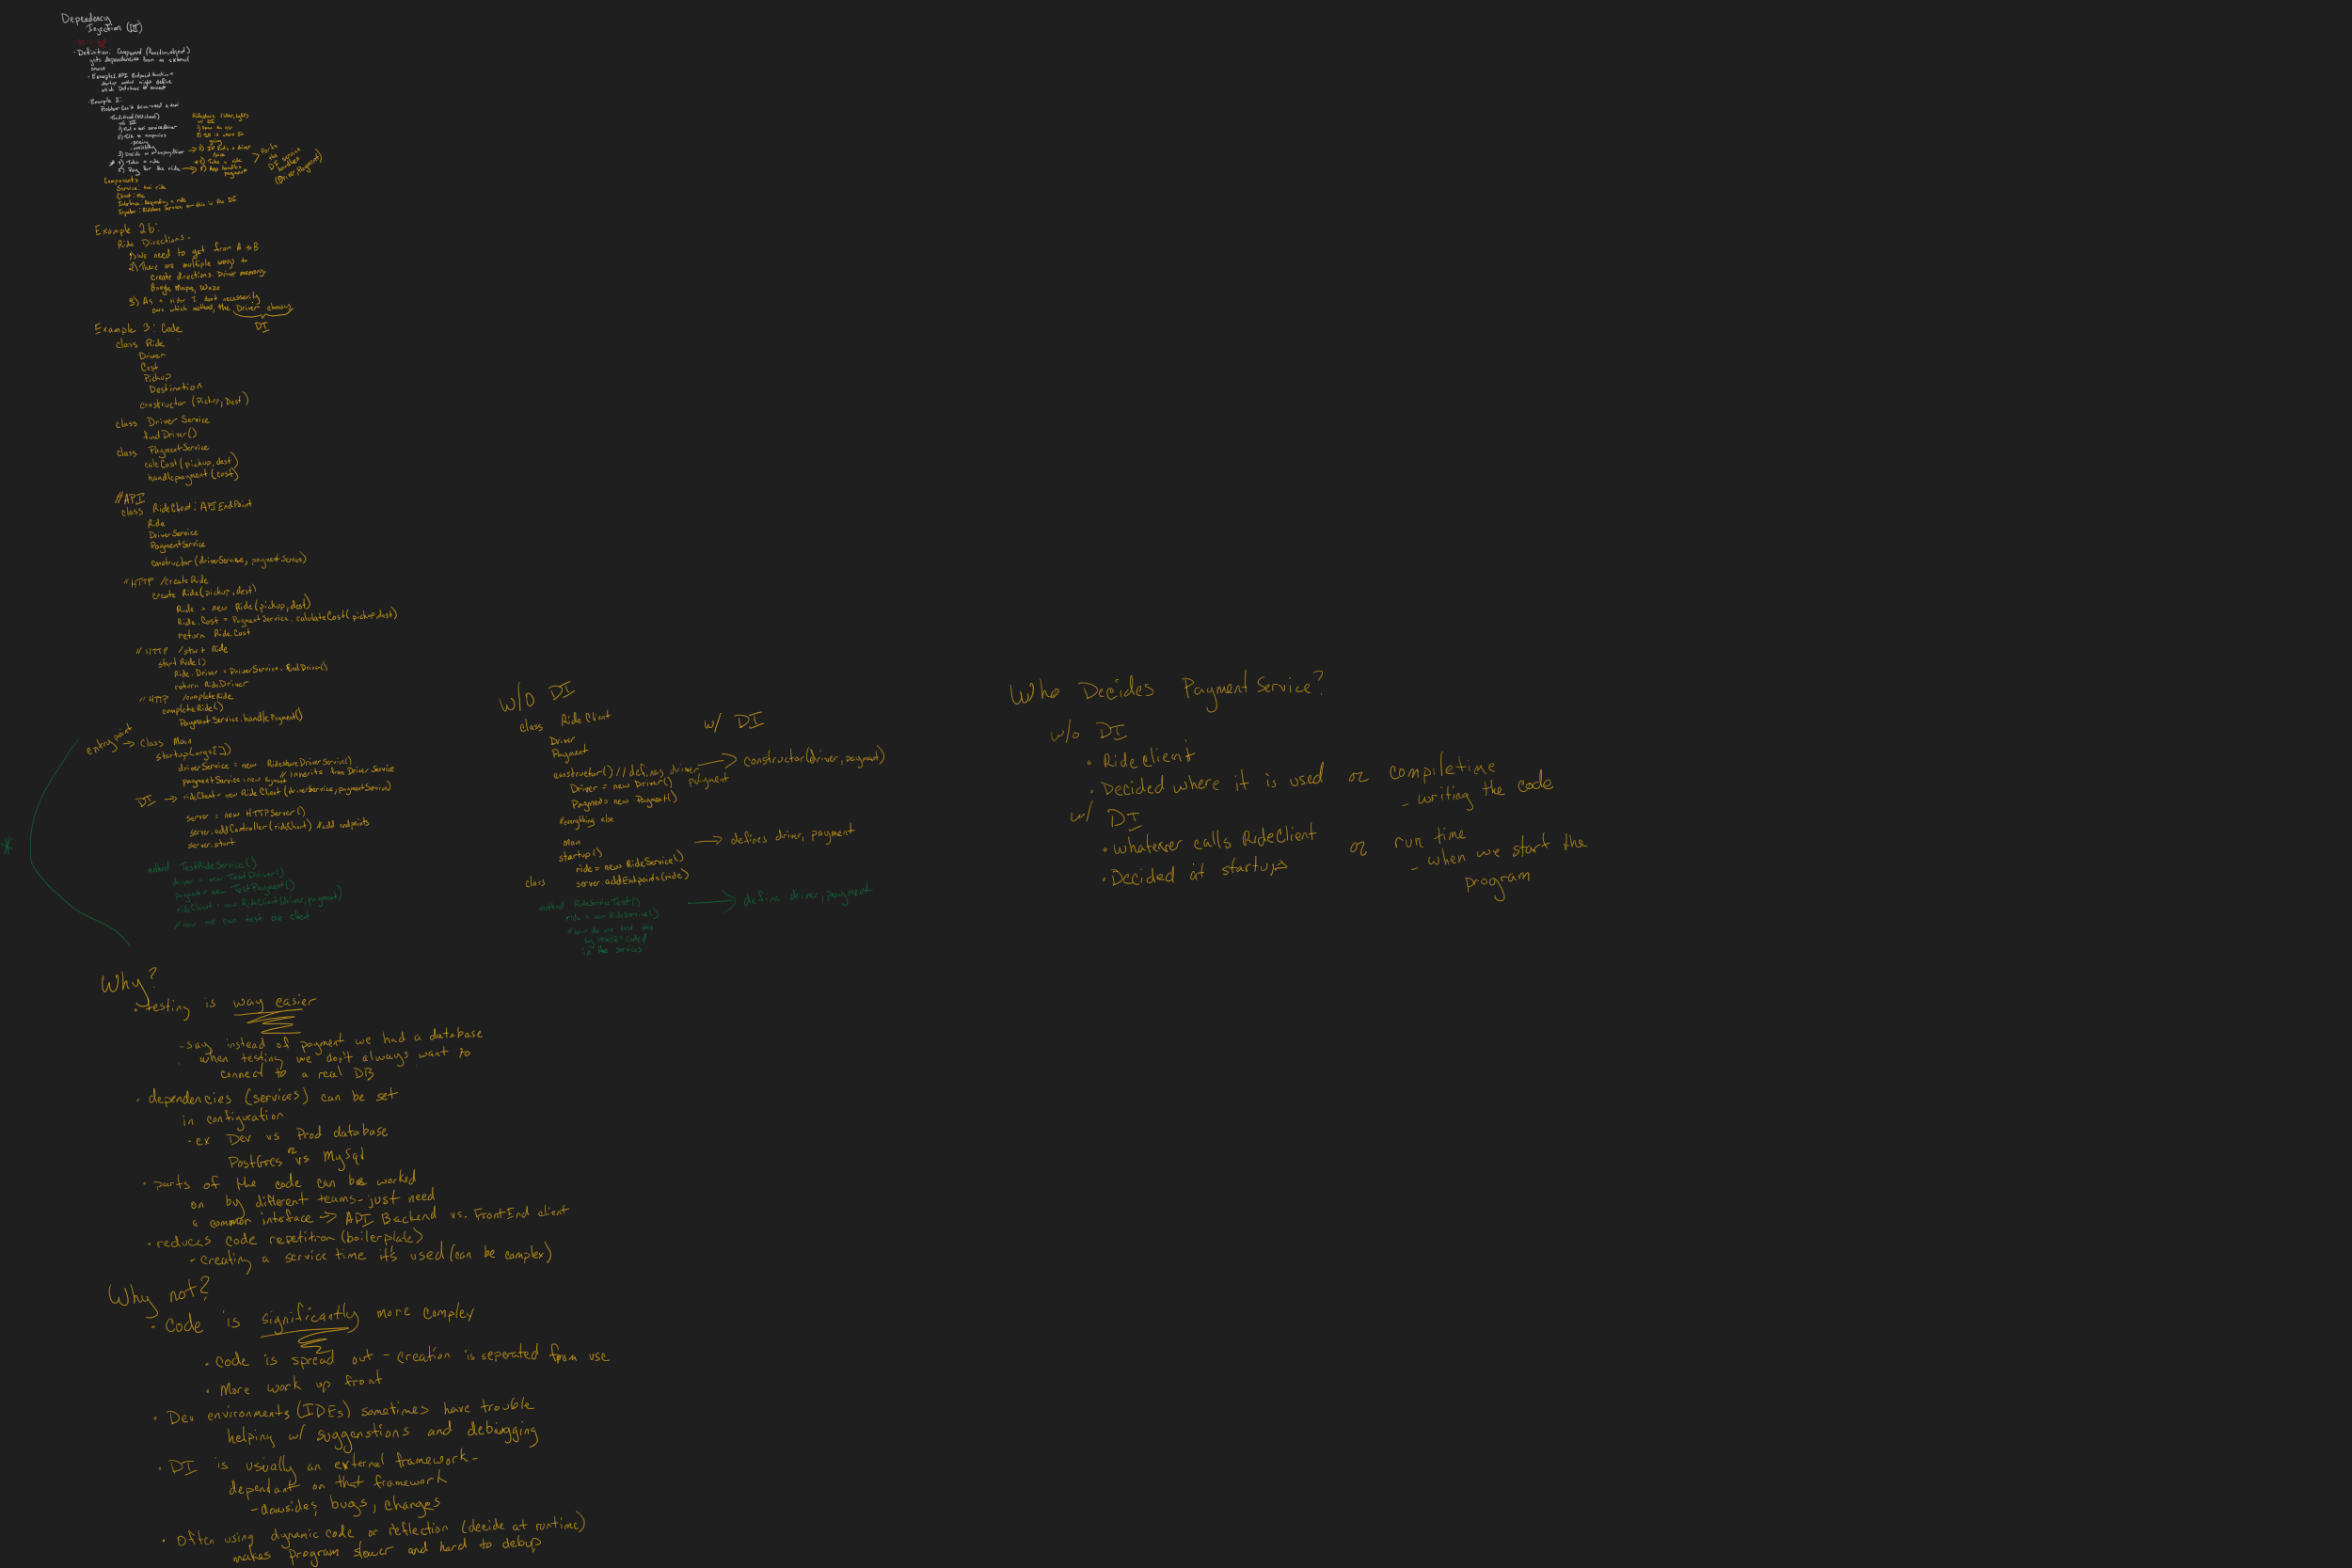 Dependency
Injection (DI)
• Definition: Component (function, object)
gets dependencies from an external
source
• Example 1: API Endpoint function
startup method might define
which Database to connect
• Example 2:
Problem: Can't drive - need a taxi
Traditional (Old school)
no DI
1) Find a taxi service/driver
2) Talk to companies
- pricing
- availability
3) Decide on a company/driver
* 4) Take a ride
5) Pay for the ride
Rideshare (Uber, Lyft)
w/ DI
1) Open the app
2) Tell it where I'm
going
→ 3) It finds a driver
* 4) Take a ride
→ 5) App handles
payment
> Parts
the
DI service
handles
(Driver, Payment)
Components
Service: taxi ride
Client: me
Interface: Requesting a ride
Injector: Rideshare Service ← this is the DI
Example 2b:
Ride Directions.
1) We need to get from A to B
2) There are multiple ways to
create directions. Driver memory,
Google Maps, Waze
3) As a rider I don't necessarily
care which method, the Driver chooses
DI
Example 3: Code
class Ride
Driver
Cost
Pickup
Destination
constructor (Pickup, Dest)
class Driver Service
findDriver()
class PaymentService
calcCost(pickup, dest)
handlepayment (cost)
//API
class RideClient: API EndPoint
Ride
DriverService
PaymentService
constructor(driverService, paymentService)
// HTTP /createRide
create Ride(pickup, dest)
Ride = new Ride(pickup, dest)
Ride.Cost = PaymentService.calulateCost(pickup, dest)
return Ride.Cost
// HTTP /start Ride
start Ride()
Ride.Driver = DriverService.findDriver()
return Ride.Driver
// HTTP /completeRide
completeRide()
PaymentService.handlePayment()
entry point → Class Main
startup(args[])
driverService = new RideShareDriverService()
// inherits from Driver Service
paymentService = new Payment
DI → rideClient = new RideClient (driverService, paymentService)
server = new HTTPServer()
server.addController(rideClient) #add endpoints
server.start
*
method TestRideService()
driver = new TestDriver()
payment = new TestPayment()
rideClient = new RideClient(driver, payment)
// now we can test our client
w/o DI
class Ride Client
Driver
Payment
constructor() // defines driver
payment
Driver = new Driver()
Payment = new Payment()
#everything else
Main
startup()
ride = new RideService()
class server.addEndpoints(ride)
method RideServiceTest()
ride = new RideService()
# how do we test this
by hard coded
in the services
w/ DI
→ constructor(driver, payment)
→ defines driver, payment
→ define driver, payment
Who Decides PaymentService?
w/o DI
• RideClient
• Decided where it is used or compiletime
- writing the code
w/ DI
• whatever calls RideClient
• Decided at startup
or run time
- when we start the
program
Why?
• testing is way easier
- say instead of payment we had a database
when testing we don't always want to
connect to a real DB
• dependencies (services) can be set
in configuration
- ex Dev vs Prod database
or
PostGres vs MySql
• parts of the code can be worked
on by different teams - just need
a common interface → API Backend vs. FrontEnd client
• reduces code repetition (boilerplate)
- creating a service time it's used (can be complex)
Why not?
• Code is significantly more complex
• Code is spread out - creation is seperated from use
• More work up front
• Dev environments (IDEs) sometimes have trouble
helping w/ suggenstions and debugging
• DI is usually an external framework -
dependant on that framework
- dowsides, bugs, changes
• Often using dynamic code or reflection (decide at runtime)
makes program slower and hard to debug